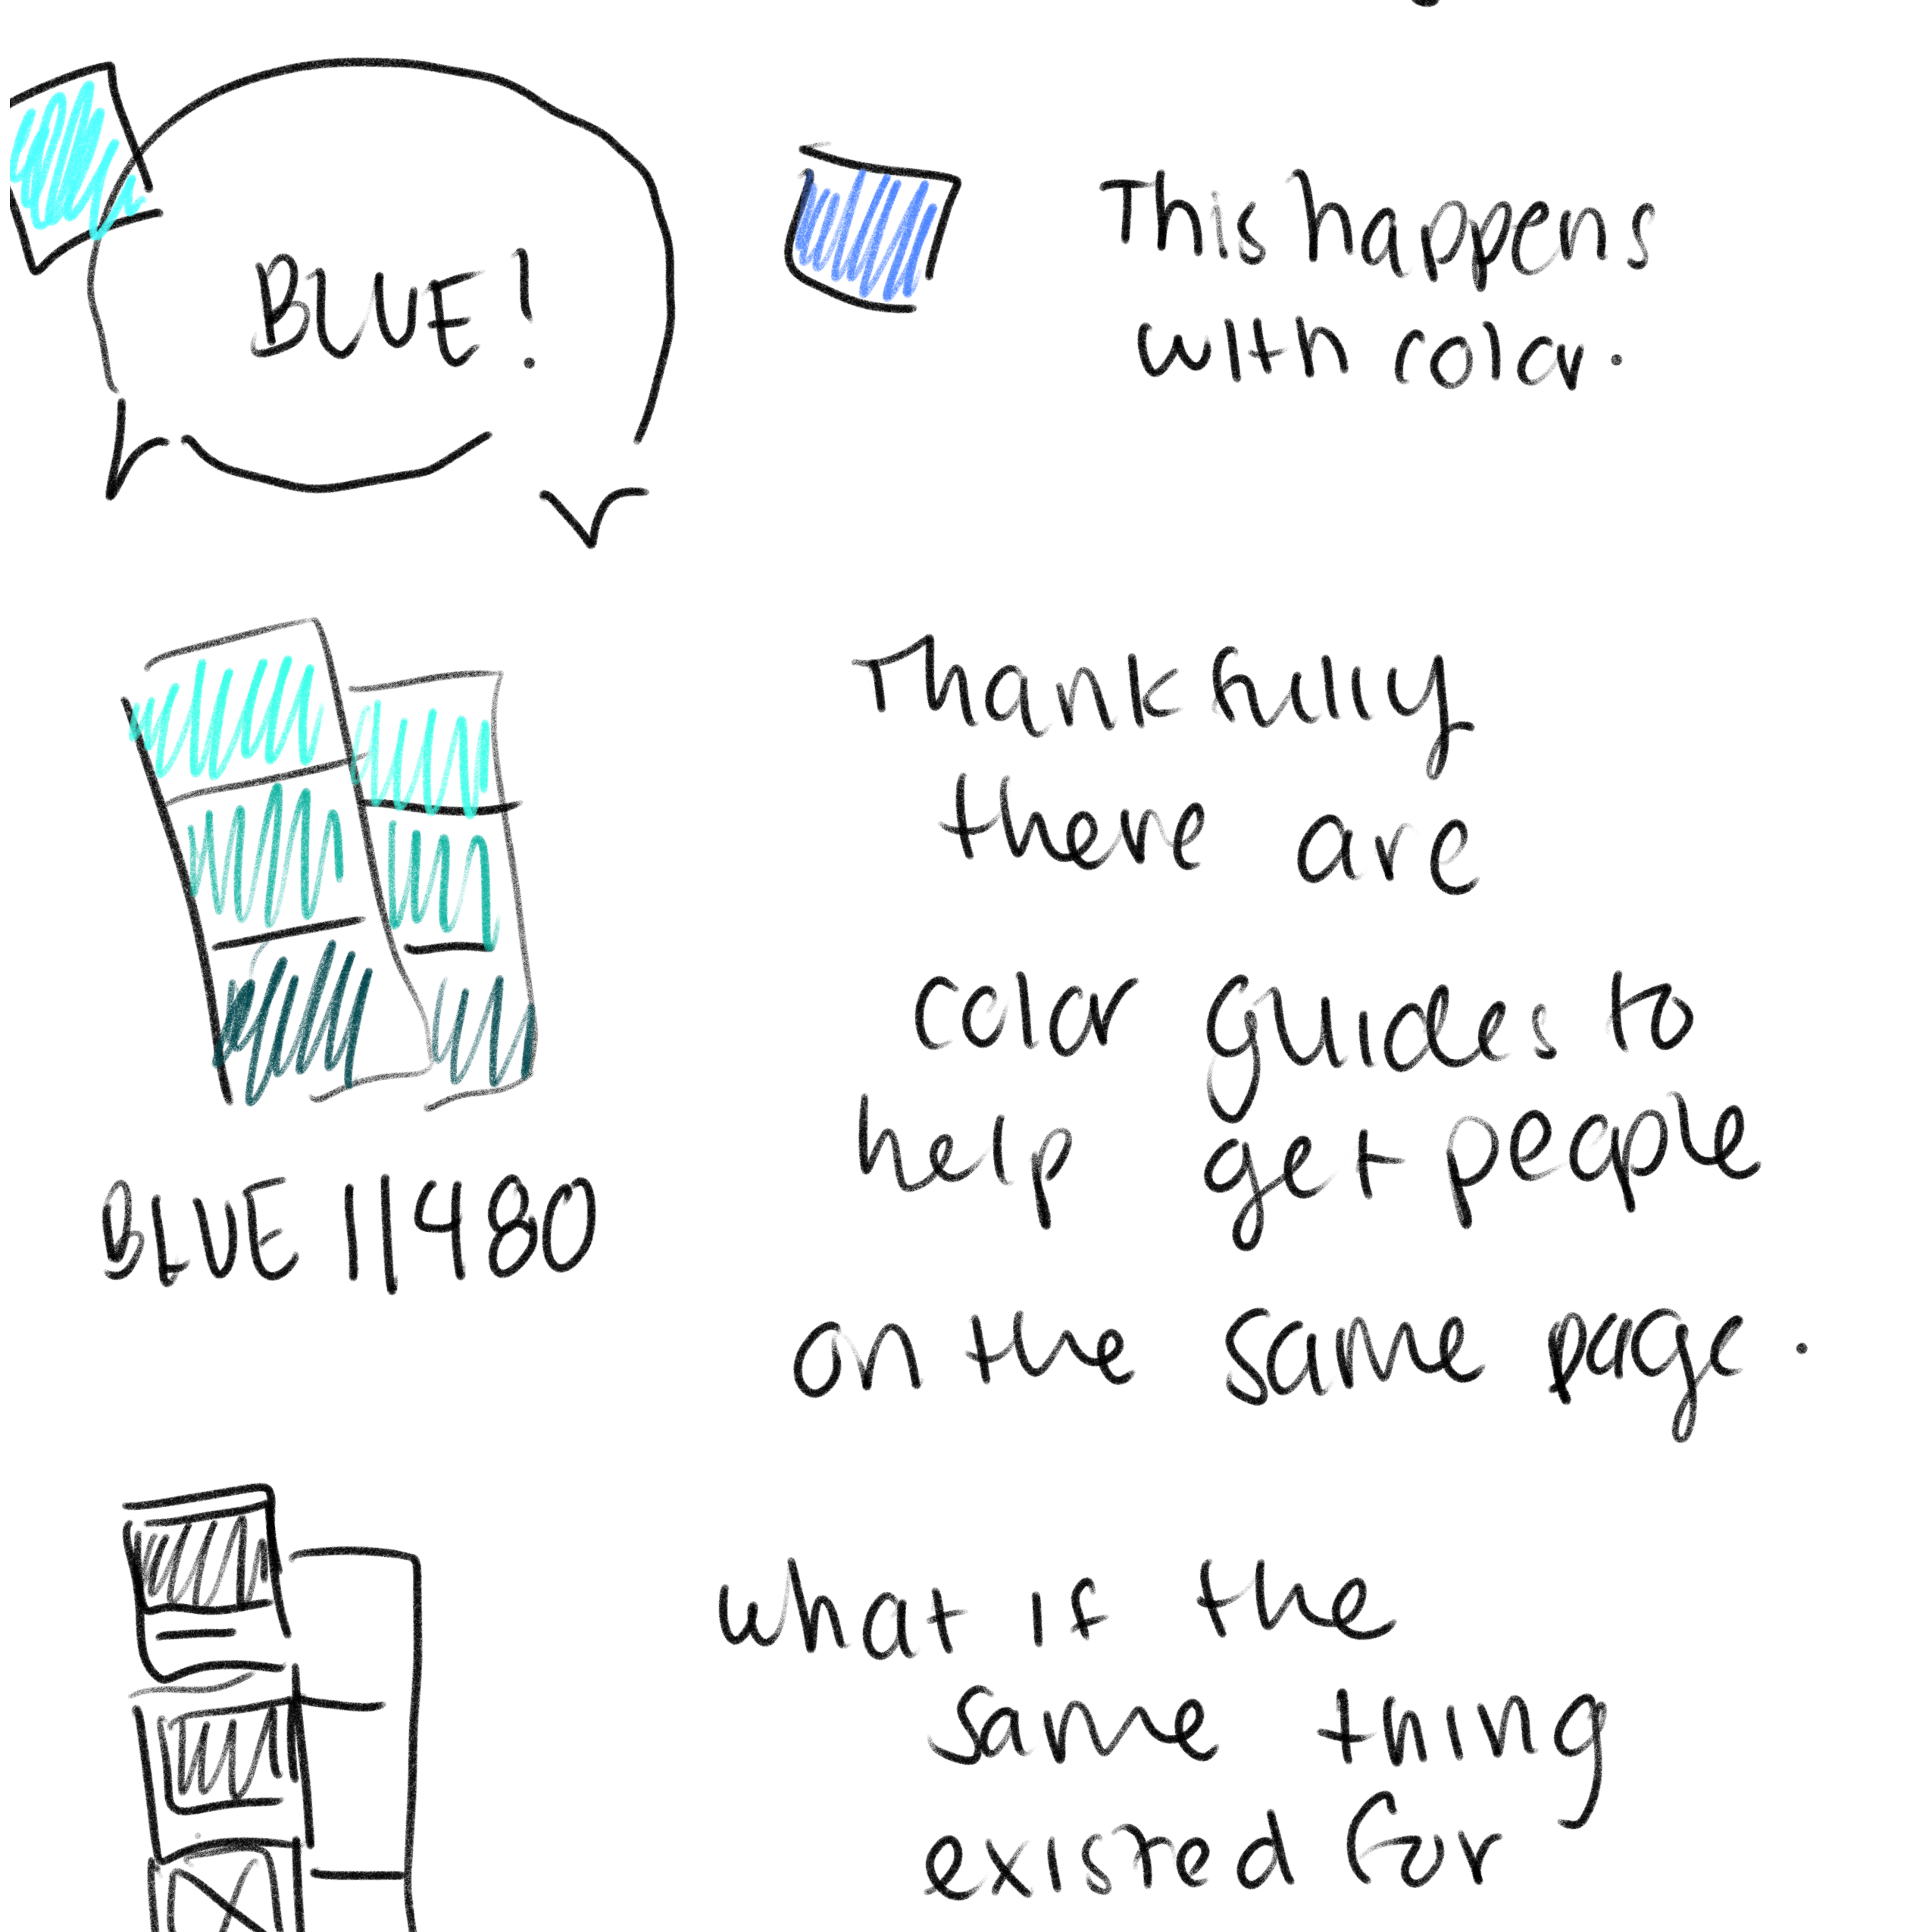 BLUE!
This happens
with color.
Thankfully
there are
color guides to
help get people
on the same page.
BLUE 11480
what if the
same thing
existed for